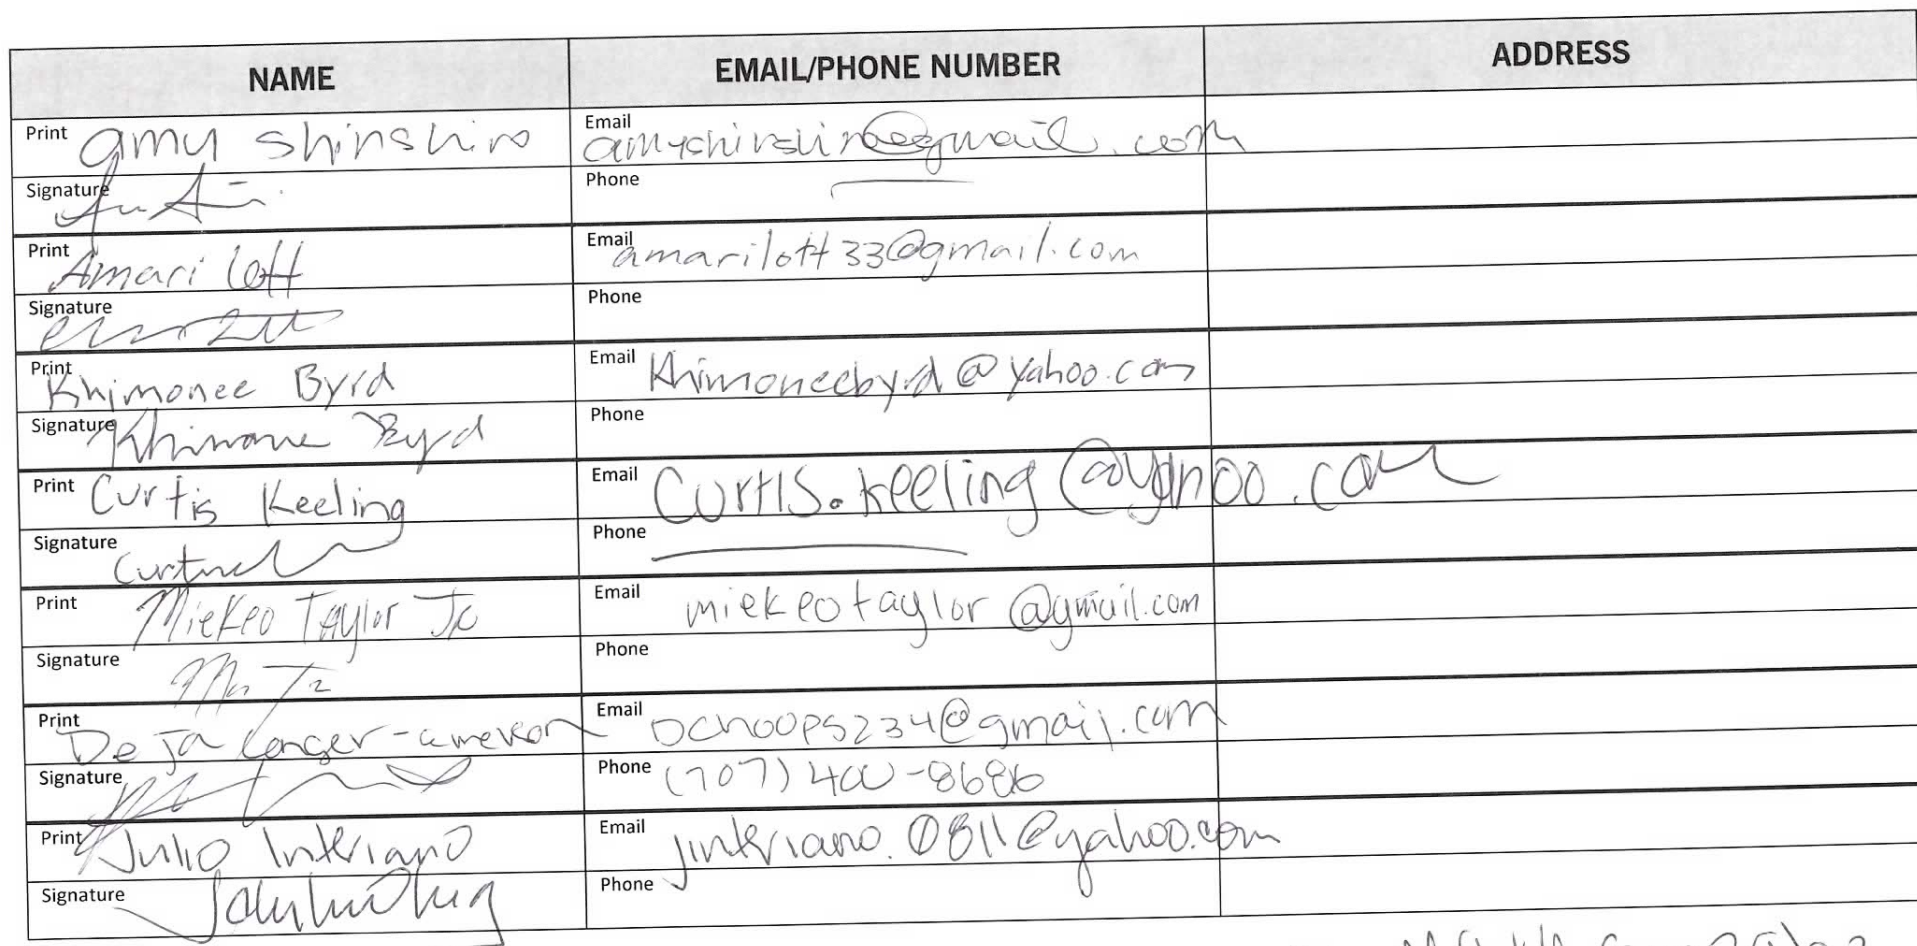 NAME EMAIL/PHONE NUMBER ADDRESS
Print amy shinshiro Email amyshinshiro@gmail.com
Signature Phone
Print Amari Lott Email amarilott33@gmail.com
Signature Phone
Print Khimonee Byrd Email Khimoneebyrd@yahoo.com
Signature Khimone Byrd Phone
Print Curtis Keeling Email Curtis.keeling@yahoo.com
Signature Phone
Print Miekeo Taylor Jr Email miekeotaylor@gmail.com
Signature Phone
Print Deja Conger-cameron Email DCHOOPS234@gmail.com
Signature Phone (707) 400-8686
Print Julio Interiano Email jinteriano.0811@yahoo.com
Signature Phone